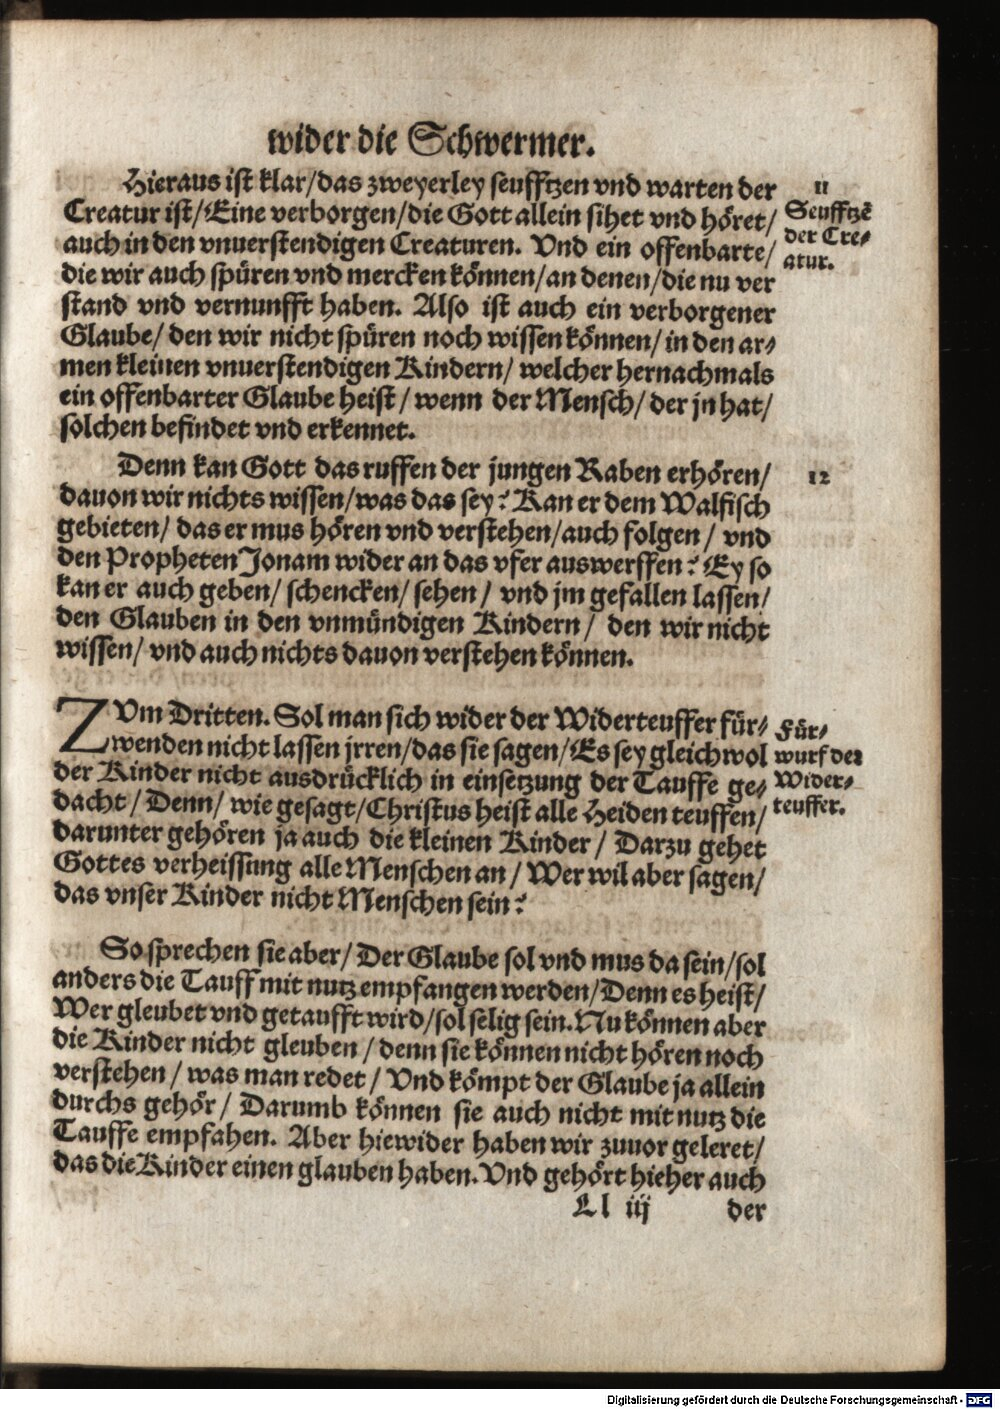 wider die Schwermer.
Hieraus ist klar/das zweyerley seufftzen vnd warten der
Creatur ist/Eine verborgen/die Gott allein sihet vnd höret/
auch in den vnuerstendigen Creaturen. Vnd ein offenbarte/
die wir auch spüren vnd mercken können/an denen/die nu ver
stand vnd vernunfft haben. Also ist auch ein verborgener
Glaube/den wir nicht spüren noch wissen können/in den ar-
men kleinen vnuerstendigen Kindern/welcher hernachmals
ein offenbarter Glaube heist/wenn der Mensch/der jn hat/
solchen befindet vnd erkennet.
11
Seufftzẽ
der Cre-
atur.
Denn kan Gott das ruffen der jungen Raben erhören/
dauon wir nichts wissen/was das sey? Kan er dem Walfisch
gebieten/das er mus hören vnd verstehen/auch folgen/vnd
den Propheten Jonam wider an das vfer auswerffen? Ey so
kan er auch geben/schencken/sehen/vnd jm gefallen lassen/
den Glauben in den vnmündigen Kindern/den wir nicht
wissen/vnd auch nichts dauon verstehen können.
12
ZVm Dritten. Sol man sich wider der Widerteuffer für-
wenden nicht lassen jrren/das sie sagen/Es sey gleichwol
der Kinder nicht ausdrücklich in einsetzung der Tauffe ge-
dacht/Denn/wie gesagt/Christus heist alle Heiden teuffen/
darunter gehören ja auch die kleinen Kinder/Darzu gehet
Gottes verheissung alle Menschen an/Wer wil aber sagen/
das vnser Kinder nicht Menschen sein?
Für-
wurf der
Wider-
teuffer.
So sprechen sie aber/Der Glaube sol vnd mus da sein/sol
anders die Tauff mit nutz empfangen werden/Denn es heist/
Wer gleubet vnd getaufft wird/sol selig sein. Nu können aber
die Kinder nicht gleuben/denn sie können nicht hören noch
verstehen/was man redet/Vnd kömpt der Glaube ja allein
durchs gehör/Darumb können sie auch nicht mit nutz die
Tauffe empfahen. Aber hiewider haben wir zuuor geleret/
das die Kinder einen glauben haben. Vnd gehört hieher auch
Ll iij
der
Digitalisierung gefördert durch die Deutsche Forschungsgemeinschaft - DFG